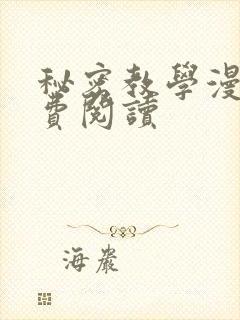 秘密教學漫
費閱讀
海巖